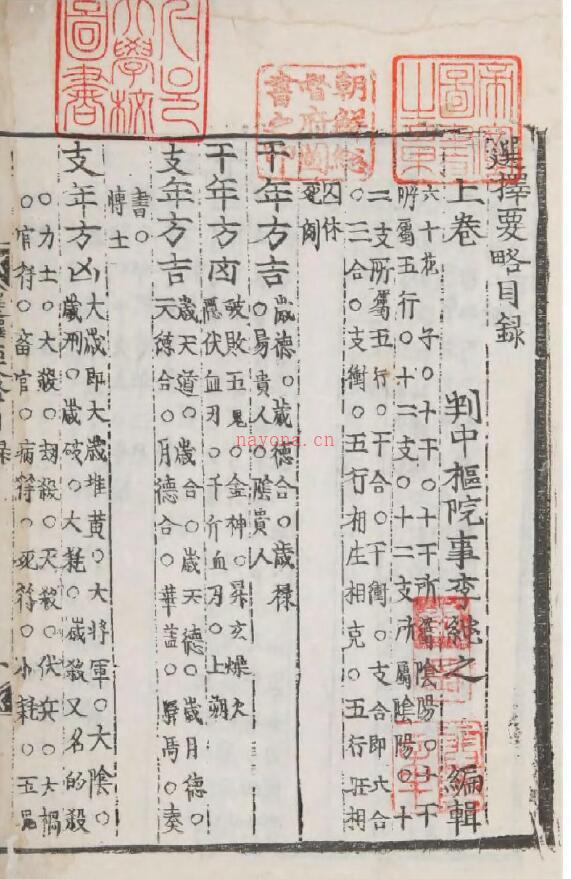 選擇要略目録
上卷
判中樞院事李純之 編輯
六十花 子○十干○十干所屬陰陽○十干
所屬五行○十二支○十二支所屬陰陽○十
二支所屬五行○干合○干衝○支合即六合
○三合○支衝○五行相生相克○五行旺相
囚休
干年方吉 歲德○歲德合○歲祿
○陽貴人○陰貴人
干年方凶 破敗五鬼○金神○昇玄燥火
隱伏血刃○千斤血刃○上朔
支年方吉 歲天道○歲合○歲天德○歲月德○
天德合○月德合○華盖○驛馬○奏
書○
博士
支年方凶 大歲即大歲堆黄○大將軍○大陰○
歲刑○歲破○大耗○歲殺又名的殺
○力士○大殺○刼殺○灾殺○伏兵○大禍
○官符○畜官○病符○死符○小耗○五鬼
朝鮮總
督府圖
書之印
圖書
nayona.cn